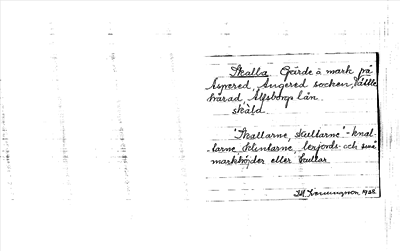 Skalla. Gärde å mark på
Aspered, Angered socken, Vättle
härad, Älfsborgs län.
skåld
"Skallarne, skultarne" - knal-
larne klintarne, lerjords- och små
markhöjder eller kullar.
1938